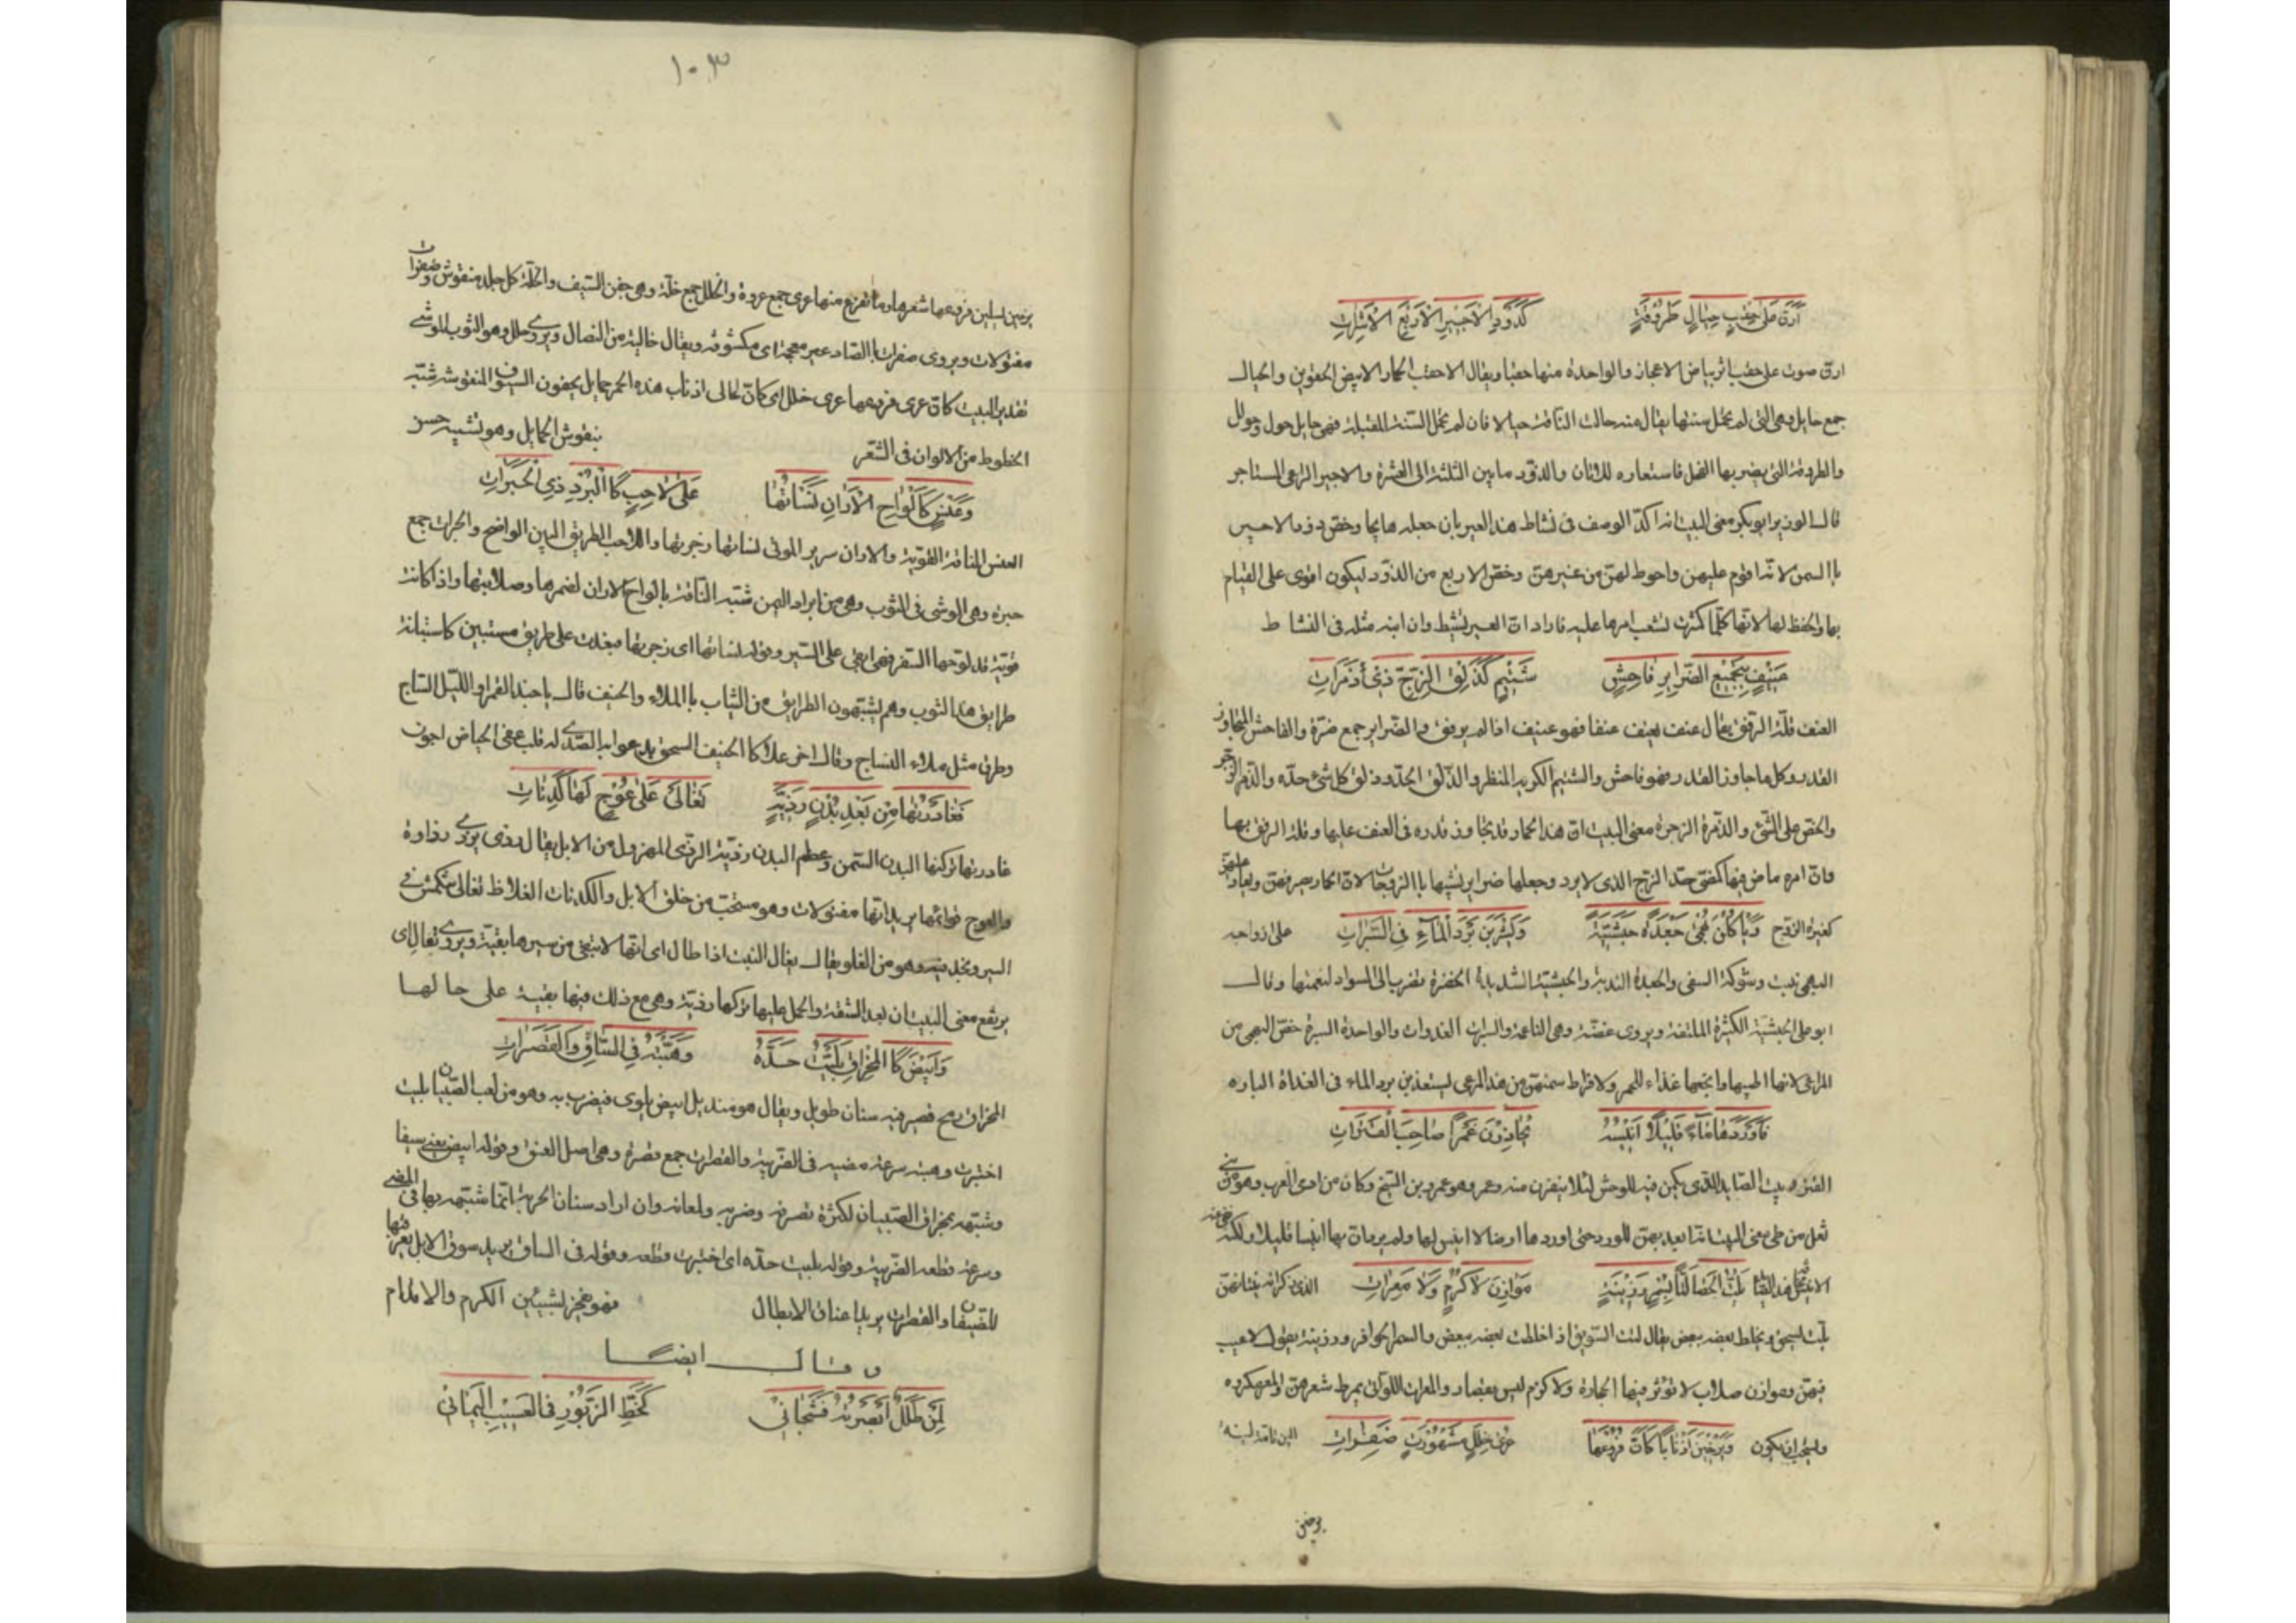 أرن على حقب حيال طروقة كذود الأجير الأربع الأشرات
ارن صوت على حقب اثر بياض الاعجاز والواحدة منها حقبا ويقال الاحقب الحمار الابيض الحقوين والحيال
جمع حايل وهى التى لم تحمل سنتها يقال منه حالت الناقة حيالا فان لم تحمل السنة المقبلة فهى حايل حول وحولل
والطروقة التى يضربها الفحل فاستعاره للاتان والذود ما بين الثلثة الى العشرة والاجير الراعى المستاجر
قال الوزير ابو بكر معنى البيت انه اكد الوصف فى نشاط هذا العير بان جعله هايجا وخص ذود الاجير
بالسمن لانه اقوم عليهن واحوط لهن من غيرهن وخص الاربع من الذود ليكون اقوى على القيام
بها والحفظ لها لانها كلما كثرت تشعب امرها عليه فاراد ان العير نشيط وان اتنه مثله فى النشاط
عنيف بتجميع الضراير فاحش شتيم كذلق الزج ذى ذمرات
العنف قلة الرفق يقال عنف يعنف عنفا فهو عنيف اذا لم يرفق والضراير جمع ضرة والفاحش المتجاوز
القدر وكل ما جاوز القدر فهو فاحش والشتيم الكريه المنظر والذلق الحد وذلق كل شئ حده والذمر الزجر
والحض على الشئ والذمرة الزجرة معنى البيت ان هذا الحمار قد تجاوز قدره فى العنف عليها وقلة الرفق بها
وان امره ماض فيها كمضى حد الزج الذى لا يرد وجعلها ضراير لشبهها بالزوجات لان الحمار يصرفهن ويغار عليهن
كغيرة الزوج وياكلن بهمى جعدة حبشية ويشربن برد الماء فى السبرات على ازواجه
البهمى نبت وشوكة السفى والجعدة الندية والحبشية الشديدة الخضرة تضرب الى السواد لنعمتها وقال
ابو على الحبشية الكثيرة الملتفة ويروى غضة وهى الناعمة والسبرات الغدوات والواحدة السبرة خص البهمى من
المراعى لانها اطيبها وانجعها غذاء للحمر ولافراط سمنهن من هذا المرعى يستعذبن برد الماء فى الغداة البارده
فاوردها ماء قليلا انيسه يحاذرن عمرا صاحب القترات
القترة بيت الصايد الذى يكمن فيه للوحش لئلا ينفرن منه وعمرو هو عمرو بن الشيخ وكان من ارمى العرب وهو من بنى
ثعل من طى معنى البيت
تلت الحصى لتا بسمر رزينة موازن لا كزم ولا معرات
تلت تسحق وتخلط بعضه ببعض يقال لتت السويق اذا خلطت بعضه ببعض والسمر الحوافر ورزينة يقول لا عيب
فيهن وموازن صلاب لا تؤثر فيها الحجارة ولا كزم ليس بقصار والمعرات اللواتى تمرط شعرهن والمعر مكروه
ويستحب ان يكون ويرخين اذنابا كان فروعها عرى خلل مشهورة ضفرات
يرخين
١٠٣
يرخين يسبلن فروعها شعرها وما تفرع منها عرى جمع عروة والخلل جمع خلة وهى جفن السيف والخلة كل جلد منقوش وضفرات
مفتولات ويروى صفرات بالصاد غير معجمة اى مكشوفة ويقال خالية من النصال ويروى حلل وهو الثوب الموشى
تقدير البيت كان عرى فروعها عرى خلل اى كان اعالى اذناب هذه الحمر حمايل بجفون السيوف المنقوشة شبه
الخطوط من الالوان فى الشعر بنقوش الحمايل وهو تشبيه حسن
وعنس كالواح الاران نساتها على لاحب كالبرد ذى الحبرات
العنس الناقة القوية والاران سرير الموتى نساتها زجرتها واللاحب الطريق البين الواضح والحبرات جمع
حبرة وهى الوشى فى الثوب وهى من ابراد اليمن شبه الناقة بالواح الاران لضمرها وصلابتها واذا كانت
قوية قد لوحها السفر فهى ابقى على السير وقوله نساتها اى زجرتها فبعدت على طريق مستبين كاستبانة
طرايق هذا الثوب وهم يشبهون الطرايق من الثياب بالملاء والحنيف قال يا حبذا القمرا والليل الساج
وطرق مثل ملاء النساج وقال اخر علا كالحنيف السحق يدعو به الصدى له قلب عفى الحياض اجون
فغادرتها من بعد بدن رذية تغالى على عوج لها كدنات
غادرتها تركتها البدن السمن وعظم البدن رذية الرذى المهزول من الابل يقال رذى يرذى رذاوة
والعوج قوائمها يريد انها مفتولات وهو مستحب من خلق الابل والكدنات الغلاظ تغالى تنكمش فى
السير وتجد فيه وهو من الغلو يقال يغالى النبت اذا طال اى انها لا تبقى من سيرها بقية ويروى تعالى اى
يرتفع معنى البيت ان بعد الشقة والحمل عليها تركها رذية وهى مع ذلك فيها بقية على حالها
وابيض كالمخراق بليت حده وهبته فى الساق والقصرات
المخراق رمح قصير فيه سنان طويل ويقال هو منديل ابيض يلوى فيضرب به وهو من لعب الصبيان بليت
اختبرت وهبته سرعة مضيه فى الضريبة والقصرات جمع قصرة وهى اصل العنق وقوله ابيض يعنى سيفا
وشبهه بمخراق الصبيان لكثرة تصرفه وضربه ولمعانه وان اراد سنان الحربة انما شبهه بها فى المضى
وسرعة قطعه الضريبة وقوله بليت حده اى اختبرت قطعه وقوله فى الساق يريد سوق الابل يعرقبها
للضيفان والقصرات يريد اعناق الابطال فهو يفخر بشيئين الكرم والاقدام
وقال ايضا
لمن طلل ابصرته فشجانى كخط الزبور فى العسيب اليمانى